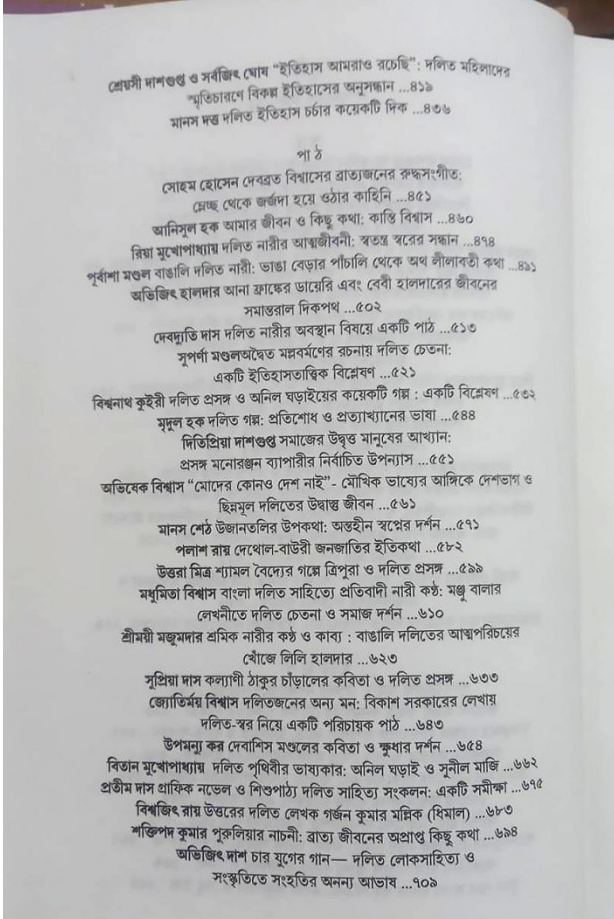 শ্রেয়সী দাশগুপ্ত ও সর্বজিৎ ঘোষ “ইতিহাস আমরাও রচেছি”: দলিত মহিলাদের
স্মৃতিচারণে বিকল্প ইতিহাসের অনুসন্ধান ...৪১৯
মানস দত্ত দলিত ইতিহাস চর্চার কয়েকটি দিক ...৪৩৬
পা ঠ
সোহম হোসেন দেবব্রত বিশ্বাসের ব্রাত্যজনের রুদ্ধসংগীত:
ম্লেচ্ছ থেকে জর্জদা হয়ে ওঠার কাহিনি ...৪৫১
আনিসুল হক আমার জীবন ও কিছু কথা: কান্তি বিশ্বাস ...৪৬০
রিয়া মুখোপাধ্যায় দলিত নারীর আত্মজীবনী: স্বতন্ত্র স্বরের সন্ধান ...৪৭৪
পূর্বাশা মণ্ডল বাঙালি দলিত নারী: ভাঙা বেড়ার পাঁচালি থেকে অথ লীলাবতী কথা ...৪৯১
অভিজিৎ হালদার আনা ফ্রাঙ্কের ডায়েরি এবং বেবী হালদারের জীবনের
সমান্তরাল দিকপথ ...৫০২
দেবদ্যুতি দাস দলিত নারীর অবস্থান বিষয়ে একটি পাঠ ...৫১৩
সুপর্ণা মণ্ডলঅদ্বৈত মল্লবর্মণের রচনায় দলিত চেতনা:
একটি ইতিহাসতাত্ত্বিক বিশ্লেষণ ...৫২১
বিশ্বনাথ কুইরী দলিত প্রসঙ্গ ও অনিল ঘড়াইয়ের কয়েকটি গল্প : একটি বিশ্লেষণ ...৫৩২
মৃদুল হক দলিত গল্প: প্রতিশোধ ও প্রত্যাখ্যানের ভাষা ...৫৪৪
দিতিপ্রিয়া দাশগুপ্ত সমাজের উদ্বৃত্ত মানুষের আখ্যান:
প্রসঙ্গ মনোরঞ্জন ব্যাপারীর নির্বাচিত উপন্যাস ...৫৫১
অভিষেক বিশ্বাস “মোদের কোনও দেশ নাই”- মৌখিক ভাষ্যের আঙ্গিকে দেশভাগ ও
ছিন্নমূল দলিতের উদ্বাস্তু জীবন ...৫৬১
মানস শেঠ উজানতলির উপকথা: অন্তহীন স্বপ্নের দর্শন ...৫৭১
পলাশ রায় দেখোল-বাউরী জনজাতির ইতিকথা ...৫৮২
উত্তরা মিত্র শ্যামল বৈদ্যের গল্পে ত্রিপুরা ও দলিত প্রসঙ্গ ...৫৯৯
মধুমিতা বিশ্বাস বাংলা দলিত সাহিত্যে প্রতিবাদী নারী কণ্ঠ: মঞ্জু বালার
লেখনীতে দলিত চেতনা ও সমাজ দর্শন ...৬১০
শ্রীময়ী মজুমদার শ্রমিক নারীর কণ্ঠ ও কাব্য : বাঙালি দলিতের আত্মপরিচয়ের
খোঁজে লিলি হালদার ...৬২৩
সুপ্রিয়া দাস কল্যাণী ঠাকুর চাঁড়ালের কবিতা ও দলিত প্রসঙ্গ ...৬৩৩
জ্যোতির্ময় বিশ্বাস দলিতজনের অন্য মন: বিকাশ সরকারের লেখায়
দলিত-স্বর নিয়ে একটি পরিচায়ক পাঠ ...৬৪৩
উপমন্যু কর দেবাশিস মণ্ডলের কবিতা ও ক্ষুধার দর্শন ...৬৫৪
বিতান মুখোপাধ্যায় দলিত পৃথিবীর ভাষ্যকার: অনিল ঘড়াই ও সুনীল মাজি ...৬৬২
প্রতীম দাস গ্রাফিক নভেল ও শিশুপাঠ্য দলিত সাহিত্য সংকলন: একটি সমীক্ষা ...৬৭৫
বিশ্বজিৎ রায় উত্তরের দলিত লেখক গর্জন কুমার মল্লিক (ধিমাল) ...৬৮৩
শক্তিপদ কুমার পুরুলিয়ার নাচনী: ব্রাত্য জীবনের অপ্রাপ্ত কিছু কথা ...৬৯৪
অভিজিৎ দাশ চার যুগের গান— দলিত লোকসাহিত্য ও
সংস্কৃতিতে সংহতির অনন্য আভাষ ...৭০৯